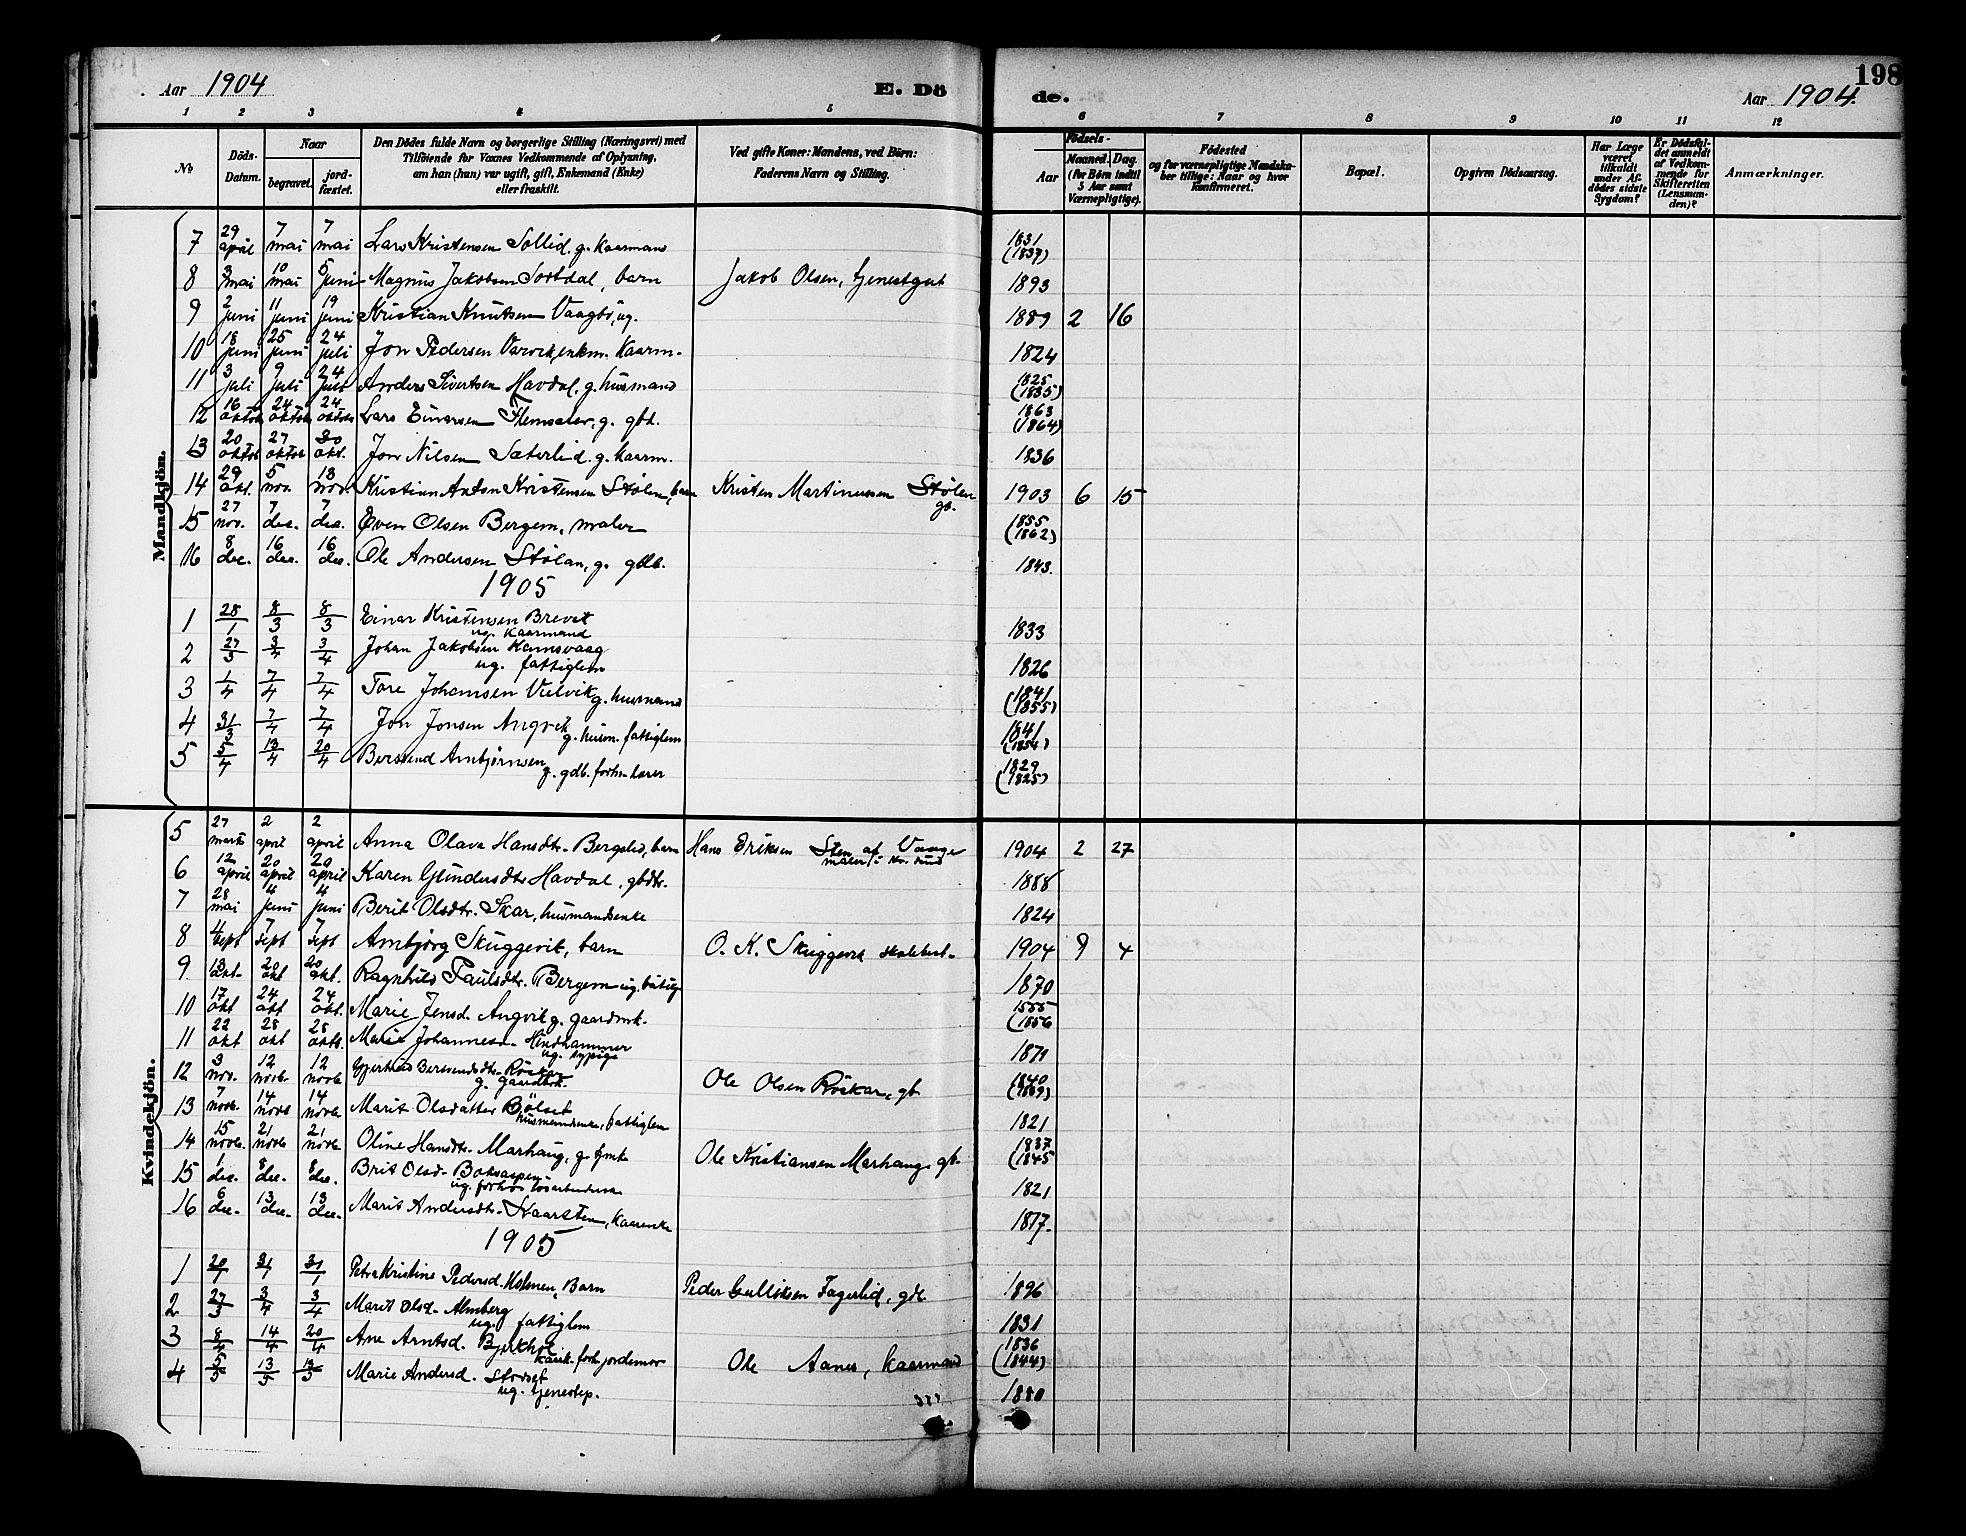 Aar 1904
E. Dö
de.
Aar 1904.
198
1 2 3 4 5 6 7 8 9 10 11 12
No
Döds-Datum.
Naar
begravet. jord-fæstet.
Den Dödes fulde Navn og borgerlige Stilling (Næringsvei) med
Tilföiende for Voxnes Vedkommende af Oplysning,
om han (hun) var ugift, gift, Enkemand (Enke)
eller fraskilt.
Ved gifte Koner: Mandens, ved Börn:
Faderens Navn og Stilling.
Födsels-
Aar Maaned. Dag.
(for Börn indtil
5 Aar samt
Værnepligtige).
Födested
og for værnepligtige Mandska-
ber tillige: Naar og hvor
Konfirmeret.
Bopæl.
Opgiven Dödsaarsag.
Har Læge
været
tilkaldt
under Af-
dödes sidste
Sygdom?
Er Dödsfal-
det anmeldt
af Vedkom-
mende for
Skifteretten
(Lensman-
den)?
Anmærkninger.
Mandkjön.
7 29 april 7 mai 7 mai Lars Kristensen Sollid, g. kaarmand 1831 (1837)
8 3 mai 10 mai 5 juni Magnus Jakobsen Sortdal, barn Jakob Olsen, tjenestgut 1893
9 2 juni 11 juni 19 juni Kristian Knutsen Vaagbö, ug. 1889 2 16
10 18 juni 25 juni 24 juli Jon Pedersen enkm. kaarm. 1824
11 3 juli 9 juli 24 juli Anders Sivertsen Havdal, g. husmand 1825 (1835)
12 16 oktob 24 oktob 24 oktob Lars Einarsen Flemsæter, g. gbr. 1863 (1864)
13 20 oktob 27 oktob 30 okt. Jon Nilsen Sæterlid, g. kaarm. 1836
14 29 okt. 5 nov. 13 nov. Kristian Anton Kristensen Stølen, barn Kristen Martinussen Stølen gb. 1903 6 15
15 27 nov. 7 dec. 7 dec. Even Olsen Bergem, maler 1855 (1862)
16 8 dec. 16 dec. 16 dec. Ole Andersen Stølan, g. gdb. 1843.
1905
1 28/1 8/3 8/3 Einar Kristensen Brevik
ug. kaarmand 1833
2 27/3 3/4 3/4 Johan Jakobsen Kamsvaag
ug. fattiglem 1826
3 1/4 7/4 7/4 Tore Johansen g. husmand 1841 (1855)
4 31/3 7/4 7/4 Jon Jonsen Angvik
g. husm. fattiglem 1841 (1854)
5 5/4 13/4 20/4 Bersvend Arnbjørnsen
g. gdb. forhv. lærer 1829 (1825)
Kvindekjön.
5 27 marts 2 april 2 april Anna Olava Hansdtr. Bergslid, barn Hans Eriksen Sten af Vaage
maler i Kr. sund 1904 2 27
6 12 april 20 april 20 april Karen Gundersdtr Havdal, gbdtr. 1888
7 28 mai 4 juni 4 juni Berit Olsdtr. Skar, husmandsenke 1824
8 4 sept 7 sept 7 sept Arnbjørg Skuggevik, barn O. K. Skuggevik skolebest. 1904 9 4
9 13 okt. 20 okt 20 okt. Ragnhild Paulsdtr. Bergem ug. 1870
10 17 okt 24 okt 24 okt. Marie Jensd. Angvik g. gaardmk. 1855 (1856
11 22 okt 28 okt 28 oktb. Marit Johannesd. Hindhammer
ug. sypige 1871
12 3 nov. 12 novb. 12 novb. Gjertrud Bersvendsdtr. Röskar
g. gaardbr. Ole Olsen Röskar, gb. 1840 (1869)
13 7 novb. 14 novb 14 novb. Marit Olsdatter Bølset
husmandsenke, fattiglem 1821
14 15 novb. 21 novb. 21 novb Oline Hansdtr. Marhaug, g. gmk Ole Kristiansen Marhaug, gb. 1837 (1845
15 1 dec. 8 dec. 8 dec. Brit Olsd. Boksaspen
ug. forhv. løsarbeiderske 1821
16 6 dec. 13 dec. 13 dec. Marit Andersdtr. Kaarsten, kaarenke 1817.
1905
1 20/1 31/1 31/1 Petra Kristine Pedersd. Holmen, Barn Peder Gulliksen Fagerlid, gdb. 1896
2 27/3 3/4 3/4 Marit Olsd. Almberg
ug. fattiglem 1831
3 8/4 14/4 20/4 Ane Arntsd. Bjerkhol
kaark. forh. jordemor Ole Aanes, kaarmand 1836 (1844)
4 5/5 13/5 13/5 Marie Andersd. Stødset
ug. tjenestep. 1880